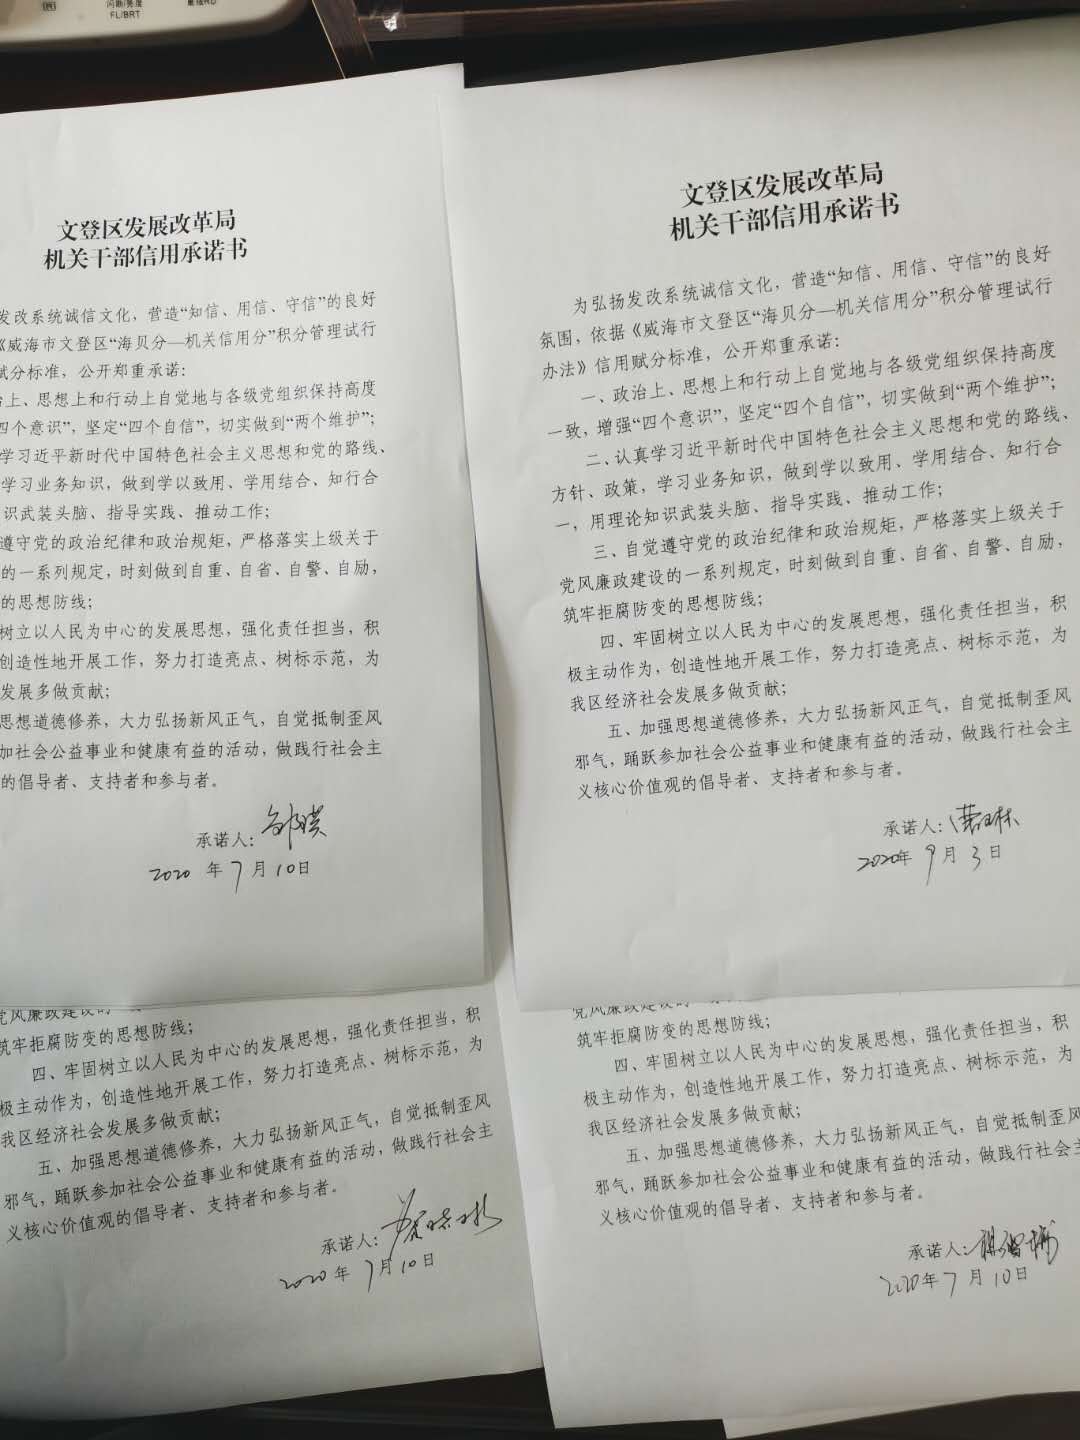 闪断/亮度
FL/BRT
重拨RD
文登区发展改革局
机关干部信用承诺书
发改系统诚信文化，营造“知信、用信、守信”的良好
《威海市文登区“海贝分—机关信用分”积分管理试行
赋分标准，公开郑重承诺：
治上、思想上和行动上自觉地与各级党组织保持高度
四个意识”，坚定“四个自信”，切实做到“两个维护”；
学习近平新时代中国特色社会主义思想和党的路线、
学习业务知识，做到学以致用、学用结合、知行合
识武装头脑、指导实践、推动工作；
遵守党的政治纪律和政治规矩，严格落实上级关于
的一系列规定，时刻做到自重、自省、自警、自励，
的思想防线；
树立以人民为中心的发展思想，强化责任担当，积
创造性地开展工作，努力打造亮点、树标示范，为
发展多做贡献；
思想道德修养，大力弘扬新风正气，自觉抵制歪风
加社会公益事业和健康有益的活动，做践行社会主
的倡导者、支持者和参与者。
承诺人：
2020 年 7 月 10 日
文登区发展改革局
机关干部信用承诺书
为弘扬发改系统诚信文化，营造“知信、用信、守信”的良好
氛围，依据《威海市文登区“海贝分—机关信用分”积分管理试行
办法》信用赋分标准，公开郑重承诺：
一、政治上、思想上和行动上自觉地与各级党组织保持高度
一致，增强“四个意识”，坚定“四个自信”，切实做到“两个维护”；
二、认真学习近平新时代中国特色社会主义思想和党的路线、
方针、政策，学习业务知识，做到学以致用、学用结合、知行合
一，用理论知识武装头脑、指导实践、推动工作；
三、自觉遵守党的政治纪律和政治规矩，严格落实上级关于
党风廉政建设的一系列规定，时刻做到自重、自省、自警、自励，
筑牢拒腐防变的思想防线；
四、牢固树立以人民为中心的发展思想，强化责任担当，积
极主动作为，创造性地开展工作，努力打造亮点、树标示范，为
我区经济社会发展多做贡献；
五、加强思想道德修养，大力弘扬新风正气，自觉抵制歪风
邪气，踊跃参加社会公益事业和健康有益的活动，做践行社会主
义核心价值观的倡导者、支持者和参与者。
承诺人：
2020年 9 月 3 日
党风廉政建设的一
筑牢拒腐防变的思想防线；
四、牢固树立以人民为中心的发展思想，强化责任担当，积
极主动作为，创造性地开展工作，努力打造亮点、树标示范，为
我区经济社会发展多做贡献；
五、加强思想道德修养，大力弘扬新风正气，自觉抵制歪风
邪气，踊跃参加社会公益事业和健康有益的活动，做践行社会主
义核心价值观的倡导者、支持者和参与者。
承诺人：
2020 年 7 月 10 日
党风廉政建设的
筑牢拒腐防变的思想防线；
四、牢固树立以人民为中心的发展思想，强化责任担当，积
极主动作为，创造性地开展工作，努力打造亮点、树标示范，为
我区经济社会发展多做贡献；
五、加强思想道德修养，大力弘扬新风正气，自觉抵制歪风
邪气，踊跃参加社会公益事业和健康有益的活动，做践行社会主
义核心价值观的倡导者、支持者和参与者。
承诺人：
2020年 7 月 10 日